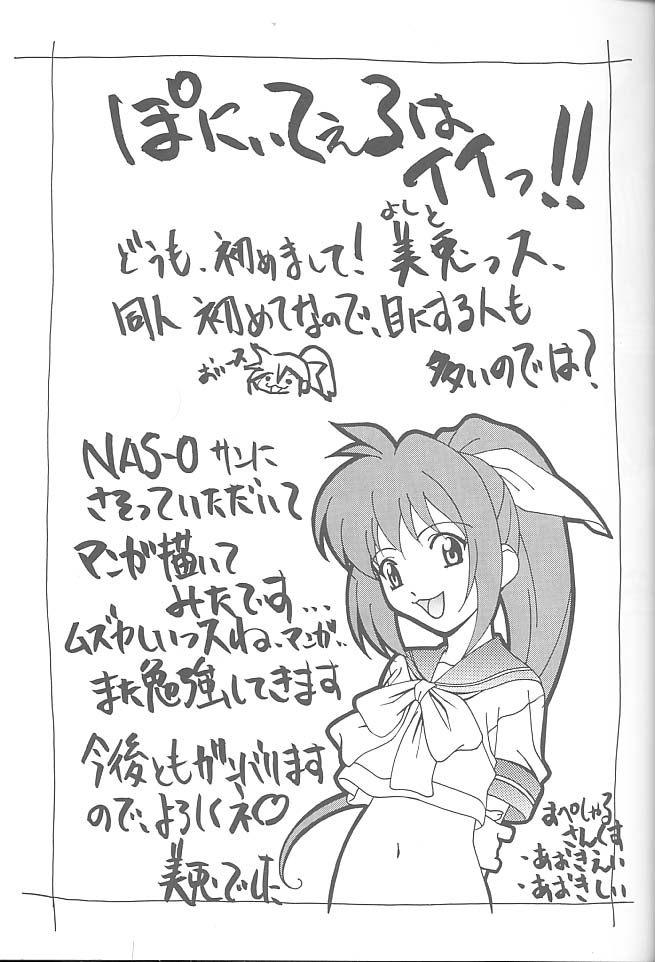 ぽにぃてぇるは
イイっ!!
よしと
どうも、初めまして!美兎っス、
同人 初めてなので、目にする人も
多いのでは?
おぃース
NAS-O サンに
さそっていただいて
マンガ描いて
みたです…
ムズかしいっスね、マンガ、、
また勉強してきます
今後ともガンバります
ので、よろしくネ♡
美兎でした
すぺしゃる
さんくす
・あおきえい
・あおきしい